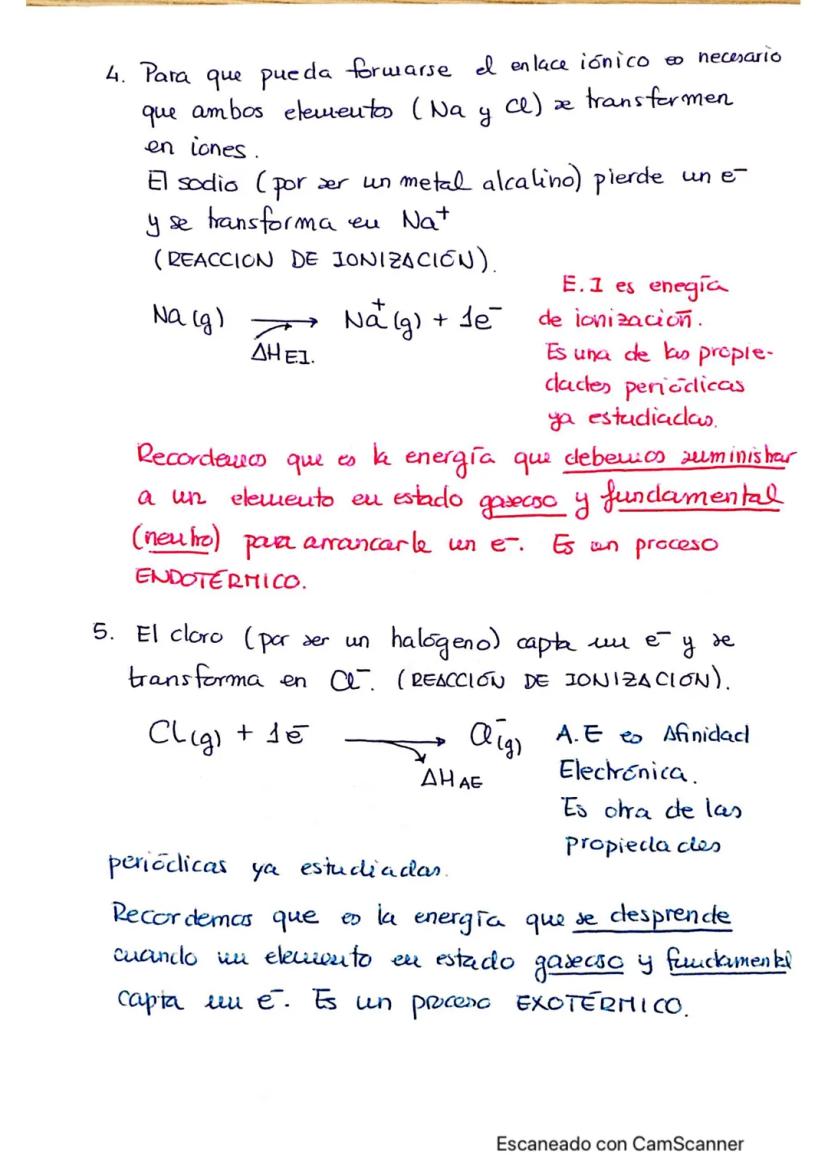 4. Para que pueda formarse el enlace iónico es necesario
que ambos elementos (Na y Cl) se transformen
en iones.
El sodio (por ser un metal alcalino) pierde un e⁻
y se transforma en Na⁺
(REACCION DE IONIZACIÓN).
Na (g) → Na⁺(g) + 1e⁻
ΔH EI.
E.I es enegía
de ionización.
Es una de las propie-
dades periódicas
ya estudiadas.
Recordemos que es la energía que debemos suministrar
a un elemento en estado gaseoso y fundamental
(neutro) para arrancarle un e⁻. Es un proceso
ENDOTÉRMICO.
5. El cloro (por ser un halógeno) capta un e⁻ y se
transforma en Cl⁻. (REACCIÓN DE IONIZACIÓN).
Cl(g) + 1e⁻ → Cl⁻(g)
ΔH AE
A.E es Afinidad
Electrónica.
Es otra de las
propiedades
periódicas ya estudiadas.
Recordemos que es la energía que se desprende
cuando un elemento en estado gaseoso y fundamental
capta un e⁻. Es un proceso EXOTÉRMICO.
Escaneado con CamScanner